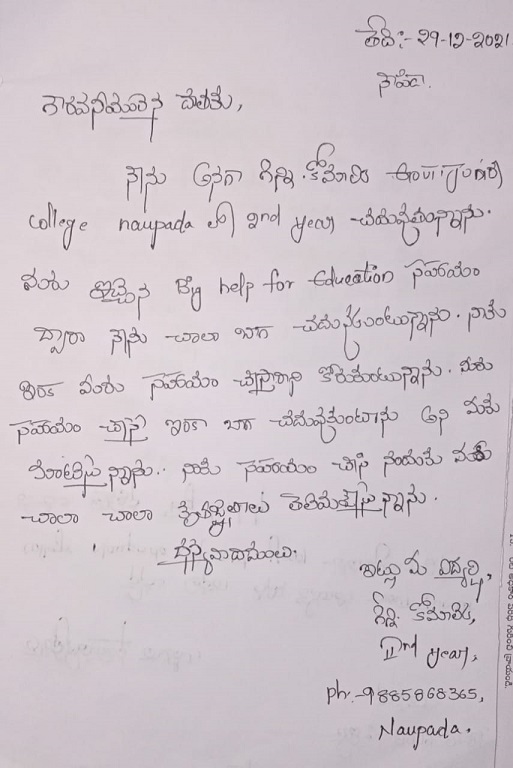 తేది:- 29-12-2021
నౌపెడా.
గౌరవనీయులైన దాతకు,
నేను అనగా గిన్ని. కోమాలి Govt. (Junior)
college naupada లో 2nd year చదువుతున్నాను.
మీరు ఇచ్చిన Big help for Education సహాయం
ద్వారా నేను చాలా బాగా చదువుకుంటున్నాను. నాకు
ఇంకా మీరు సహాయం చేస్తారాని కోరుకుంటున్నాను. మీరు
సహాయం చేస్తే ఇంకా బాగా చదువుకుంటాను అని మీకు
మాటిస్తున్నాను. నాకు సహాయం చేసినందుకు మీకు
చాలా చాలా కృతజ్ఞతలు తెలియజేస్తున్నాను.
ధన్యవాదములు.
ఇట్లు మీ విద్యార్థి,
గిన్ని కోమాలి,
IInd year,
ph:-9885868365,
Naupada.